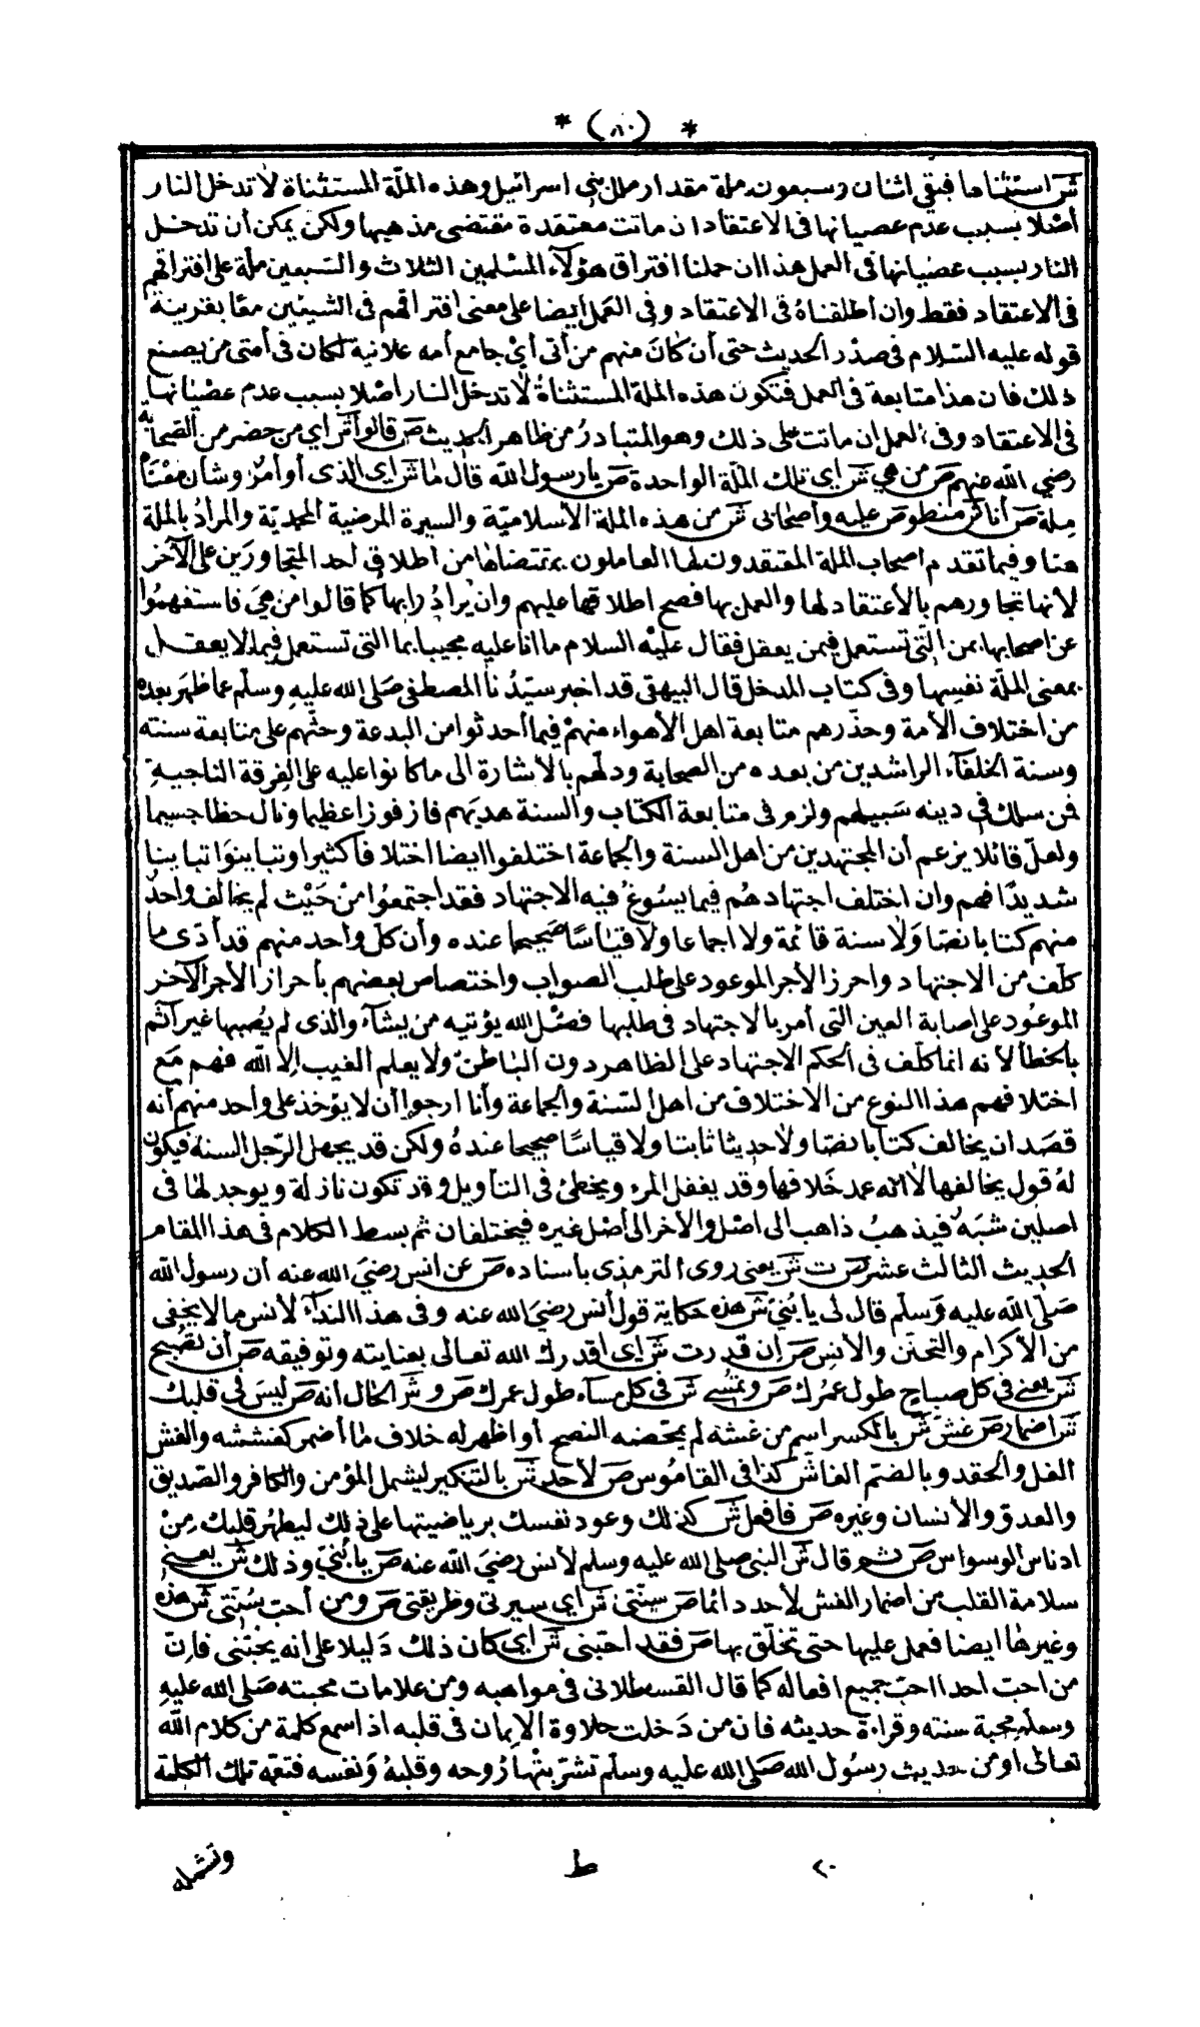 * (٨٠) *
ش استثناها فبقي اثنان وسبعون ملة مقدار ملل بني اسرائيل وهذه الملّة المستثناة لا تدخل النار
أصلا بسبب عدم عصيانها فى الاعتقاد ان ماتت معتقدة مقتضى مذهبها ولكن يمكن أن تدخل
النار بسبب عصيانها فى العمل هذا ان حملنا افتراق هؤلآء المسلمين الثلاث والسّبعين ملّة على افتراقهم
فى الاعتقاد فقط وان أطلقناهُ فى الاعتقاد وفى العَمل أيضا على معنى افتراقهم فى الشيئين معًا بقرينة
قوله عليه السّلام في صدْر الحديث حتى أن كانَ منهم من أتى أيْ جامع أمه علانية لكان فى أمتى من يصنع
ذلك فان هذا متابعة فى العمل فتكون هذه الملة المستثناةُ لا تدخل النار اصْلا بسبب عدم عصْيانها
فى الاعتقاد وفى العمل إن ماتت على ذلك وهو المتبادرُ من ظاهر الحديث ص قالوا ش اي من حضر من الصّحابة
رضي الله عنهم ص من هي ش اي تلك الملّة الواحدة ص يا رسول الله قال ما ش اي الذى أو أمرٌ وشأن مفتتاح
ملة ص أنا ش منطو ص عليه وأصحابى ش من هذه الملة الاسلاميّة والسيرة المرضية المحمديّة والمرادُ بالملة
هنا وفيما تقدم اصحاب الملة المعتقدون لها العاملون بمقتضاها من اطلاق احد المتجاورَين على الآخر
لأنها تجاورهم بالأعتقاد لها والعمل بها فصح اطلاقها عليهم وان يْرادُ رابها كما قالوا من هيَ فاستفهمُوا
عن اصحابها بمن الّتى تستعمل فيمن يعقل فقال عليْه السلام ما انا عليه مجيبا بما التى تستعمل فيما لا يعقل
بمعنى الملّة نفسِها وفى كتاب المدخل قال البيهقى قد اخبر سيّدُنا المصطفى صَلى الله عليهِ وسلّم عما ظهَر بعده
من اختلاف الأمة وحذّرهم متابعة اهل الأهواء منهمْ فيما أحدثوا من البدعة وحثّهم على متابعة سنته
وسنة الخلفآء الراشدين من بعده من الصحابة ودلّهم بالأشارة الى ما كانوا عليه على الفِرقة الناجيةِ
فمن سلك فى دينه سَبيلهم ولزم فى متابعة الكتاب والسنة هديَهم فاز فوزا عظيما ونال حظا جسيما
ولعلّ قائلا يزعم أن المجتهدين من اهل السنة والجماعة اختلفوا ايضا اختلافا كثيرا وتباينوَا تباينا
شديدًا فهم وان اختلف اجتهادهُم فيما يسُوغ فيه الاجتهاد فقد اجتمعُوا منْ حَيْث لم يخالف واحدٌ
منهم كتابا نصّا وَلا سنة قائمة ولا اجماعا ولا قيَاسًا صَحيحا عنده وأن كلّ واحد منهم قد أدّى ما
كلّف من الاجتهاد واحرز الأجر الموعود على طلب الصواب واختصاص بعضهم بأحراز الأجر الآخر
الموعُود على إصابة العين التى أمر بالاجتهاد فى طلبها فضْل الله يؤتيه منْ يشآء والذى لم يُصبها غير آثم
بالخطأ لأنه انما كلّف فى الحكم الاجتهاد على الظاهر دون البَاطنْ ولا يعلم الغيب اِلا الله فهم مَع
اختلافهم هذا النوع من الاختلاف من اهل السّنة والجماعة وأنا ارجو أن لا يؤخذ على واحد منهم أنه
قصَد ان يخالف كتابا نصّا ولا حديثا ثابتا ولا قياسًا صحيحا عندهُ ولكن قد يجهل الرّجل السنة فيكون
لهُ قول يخالفها لا أنه عمد خَلافها وقد يغفل المرء ويخطئ فى التأويل وقد تكون نازلة ويوجد لها فى
اصلين شبَهٌ فيذهبُ ذاهب الى اصْل والآخر الى أصْل غيره فيختلفان ثم بسط الكلام فى هذا المقام
الحديث الثالث عشر ص ت ش يعنى روى الترمذى بأسناده ص عن انس رضيَ الله عنه أن رسول الله
صَلّى الله عليه وَسلّم قال لى يا بُنيّ ش هذه حَكاية قول أنس رضيَ الله عنه وفى هذا الندآء لأنس مما لا يخفى
من الأكرام والتحنّن والأنس ص اِن قدرت ش اى اقدرك الله تعالى بعنايته وتوفيقه ص أن تصْبح
ش يعنى فى كل صباح طول عمُرك ص وتمْسى ش فى كل مسآء طول عمرك ص و ش الحال أنه ص ليسَ فى قلبك
ش اضمار ص غشّ ش بالكسر اسم من غشه لم يمحضه النصح أو اظهر له خلاف ما أضمر كغششه والغش
الغل والحقد وبالضمّ الغاشّ كذا فى القامُوس ص لأحدٍ ش بالتنكير ليشمل المؤمن والكافر والصّديق
والعدوّ والأنسان وغيره ص فافعل ش كذلك وعود نفسك برياضيتها على ذلك ليطهُر قلبك مِنْ
ادناس الوسواس ص ثم قال ش النبى صلى الله عليه وسلم لأنس رضيَ الله عنه ص يا بُنيّ وذلك ش يعنى
سلامة القلب من اضمار الغش لأحد دائما ص سنّتى ش أي سيرتى وطريقتى ص ومن أحبّ سُنّتى ش هذه
وغيرها ايضا فعمل عليها حتى تخلّق بها ص فقد احبّنى ش اي كان ذلك دَليلا على أنه يحبّنى فاِنّ
من احبّ احدا احبّ جميع افعاله كما قال القسطلانى فى مواهبه ومن علامات محبته صَلى الله عليهِ
وسلّم محبة سنته وقراءة حديثه فان من دَخلت حلاوة الاِيمان فى قلبه اذا سمع كلمة من كلام الله
تعالى او من حديث رسُول الله صَلى الله عليه وسلّم تشرّبتْها رُوحه وقلبهُ وَنفسه فتعّمه تلك الكلمة
٢٠ ط وتشمله